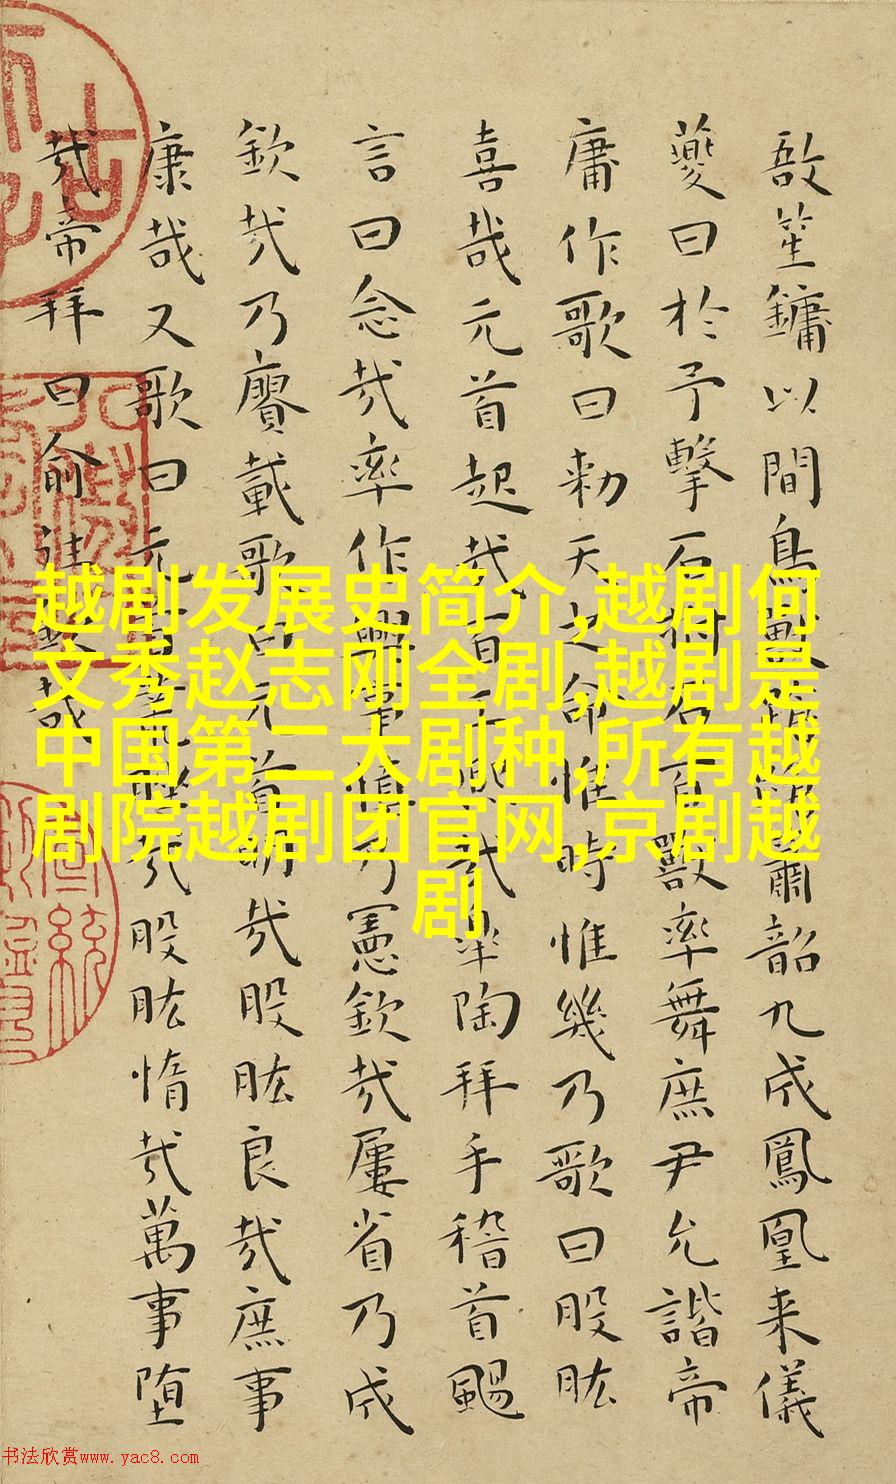 敔笙鏞以間鳥獸簫韶九成鳳凰来儀
夔曰於予擊石拊石百獸率舞庶尹允諧帝
庸作歌曰勑天之命惟時惟幾乃歌曰股肱
喜哉元首起哉百工熙哉皋陶拜手稽首颺
言曰念哉率作興事慎乃憲欽哉屢省乃成
欽哉乃賡載歌曰元首明哉股肱良哉庶事
康哉又歌曰元首叢脞哉股肱惰哉萬事堕
哉帝拜曰俞往欽哉
越剧发展史简介,越剧何
文秀赵志刚全剧,越剧是
中国第二大剧种,所有越
剧院越剧团官网,京剧越
剧
书法欣赏www.yac8.com